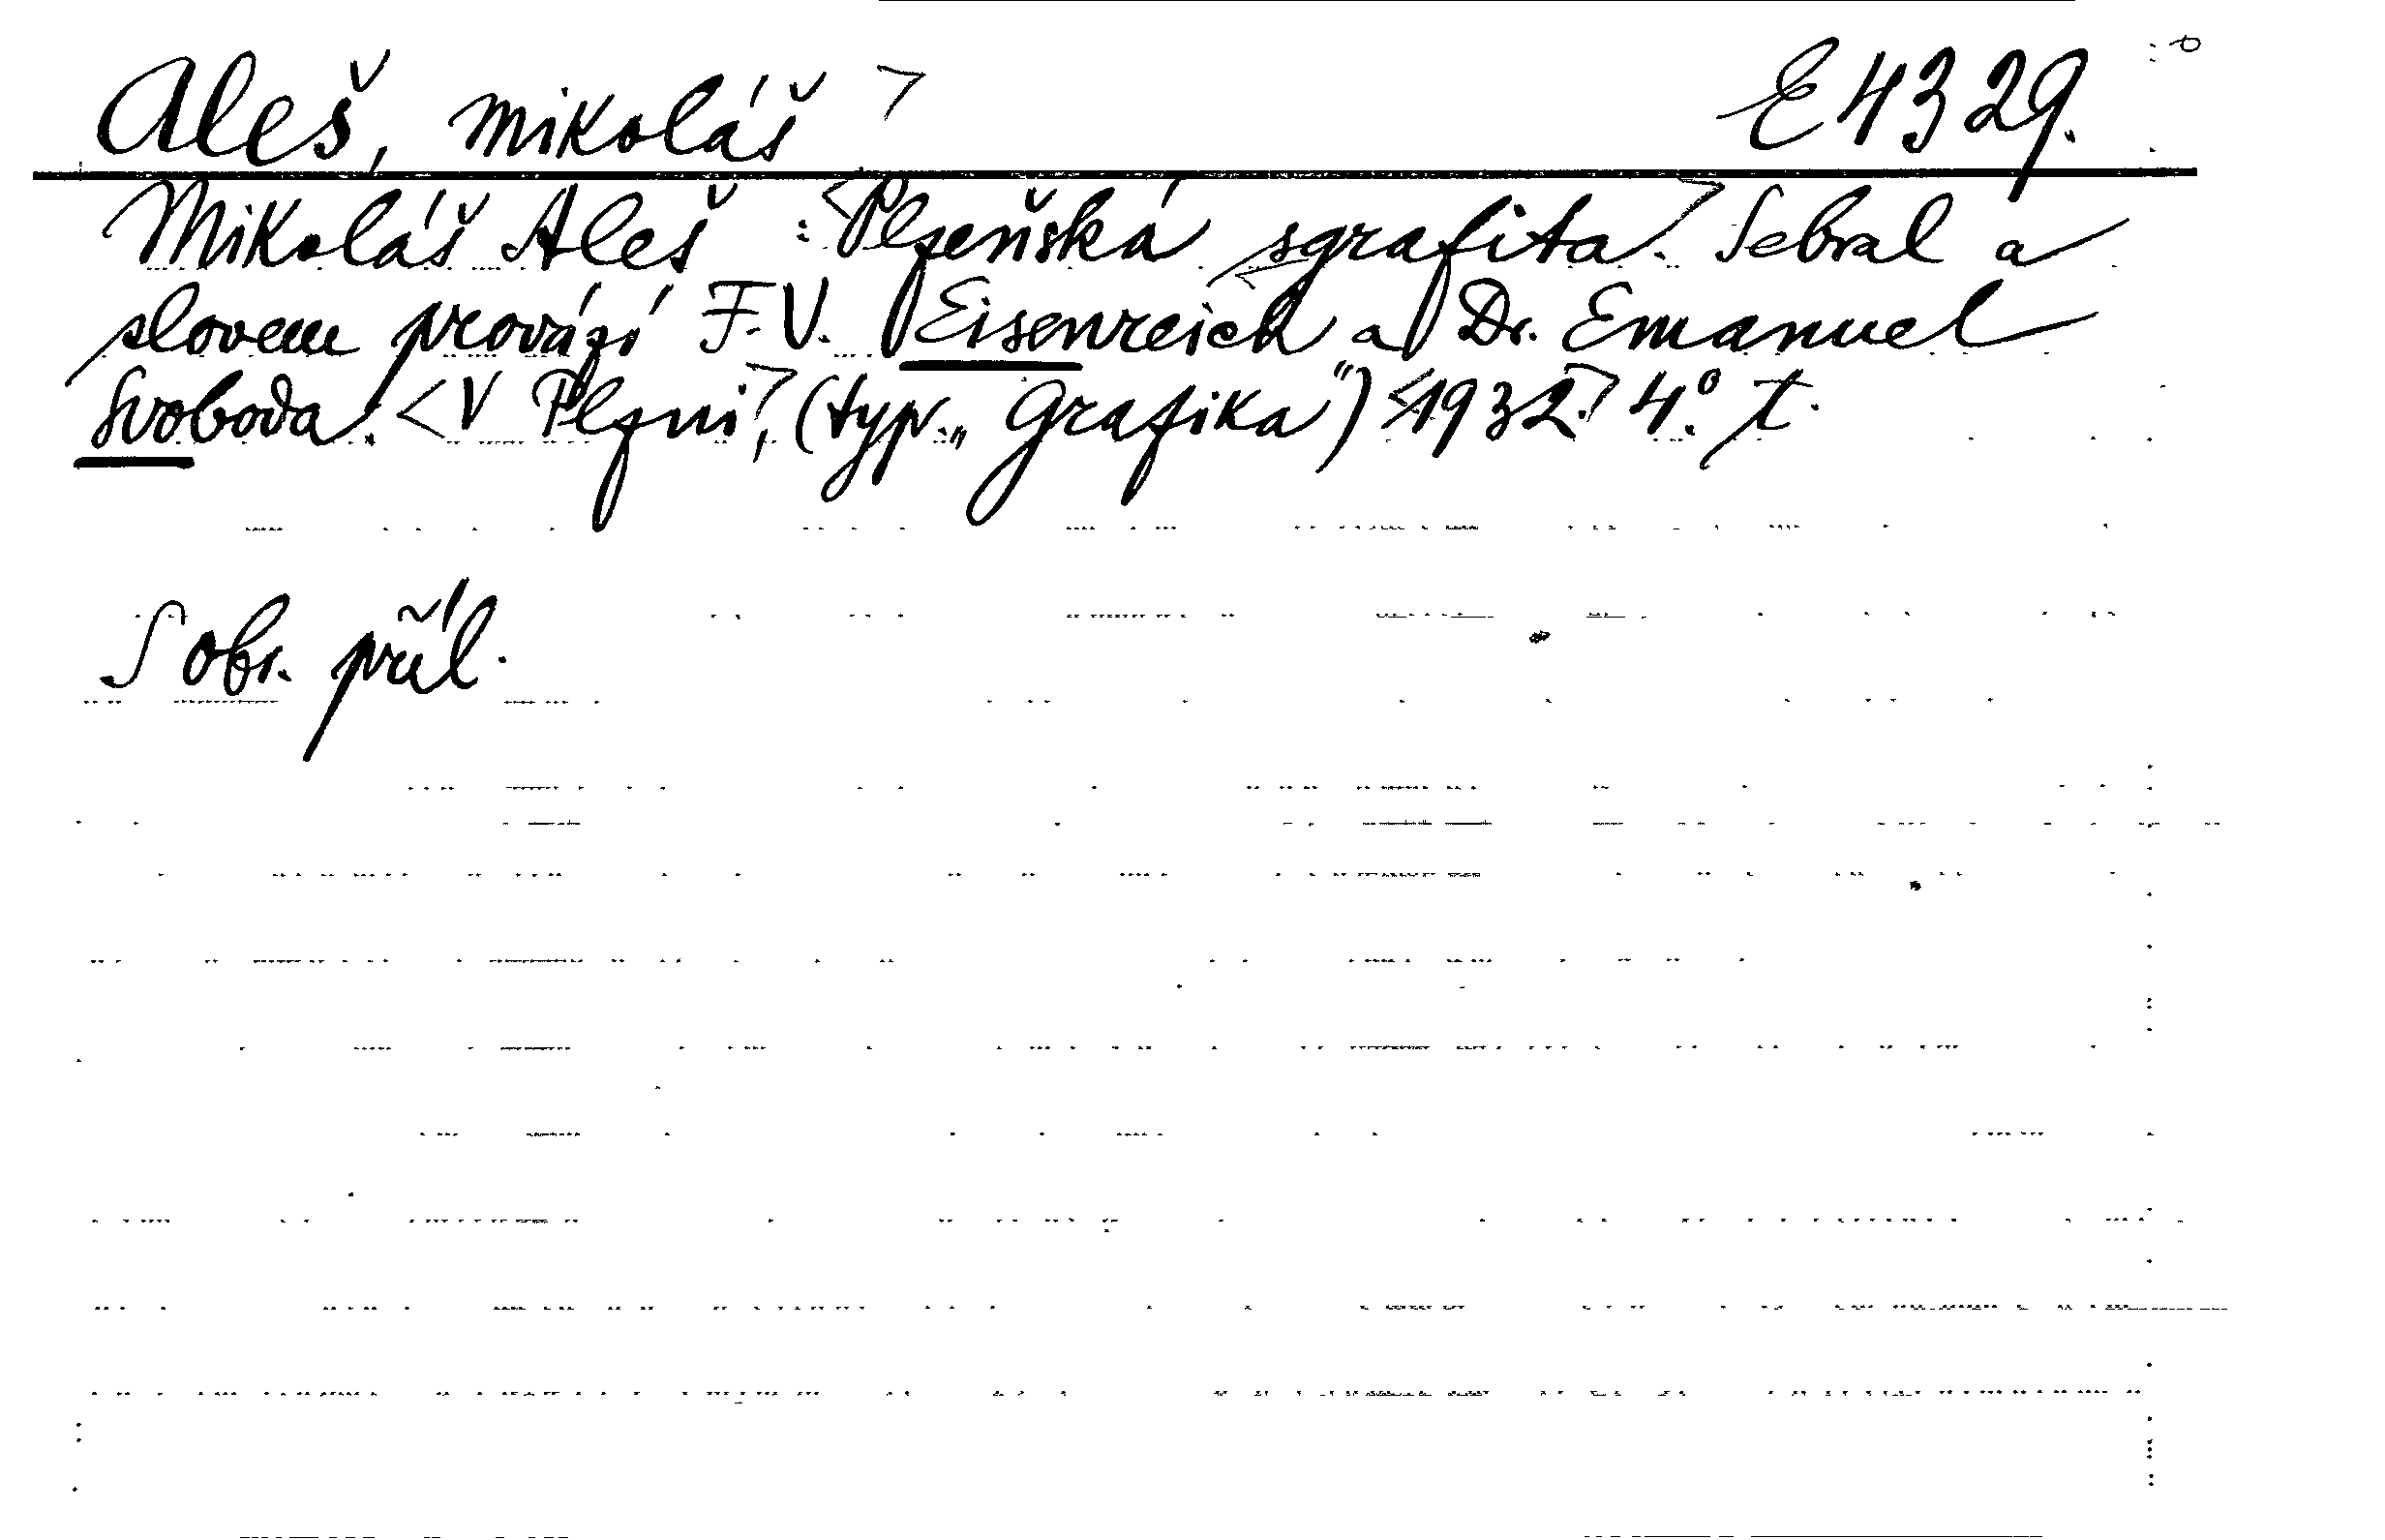 Aleš, Mikoláš > E 4329.
Mikoláš Aleš : <Plzeňská sgrafita.> Sebral a
slovem provází F. V. Eisenreich a Dr. Emanuel
Svoboda. <V Plzni>, (typ. „Grafika") <1932.> 4°. t.
S obr. příl.